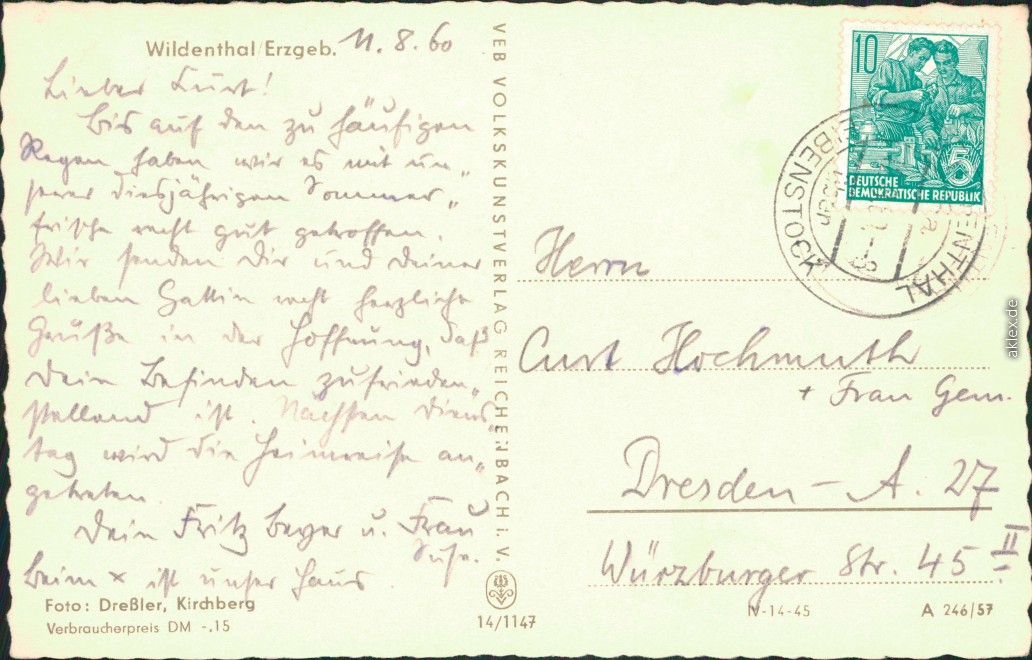 Wildenthal/Erzgeb. 11.8.60
Lieber Kurt!
Bis auf den zu häufigen
Regen haben wir es mit un„
serer diesjährigen Sommer„
frische recht gut getroffen.
Wir senden Dir und deiner
lieben Gattin recht herzliche
Grüße in der Hoffnung, daß
Dein Befinden zufrieden„
stellend ist. Nächsten Diens„
tag wird die Heimreise an„
getreten.
Dein Fritz Beyer u. Frau
Suse.
Beim x ist unser Haus.
Foto: Dreßler, Kirchberg
Verbraucherpreis DM -.15
VEB VOLKSKUNSTVERLAG REICHENBACH i. V.
14/1147
10
5
DEUTSCHE
DEMOKRATISCHE REPUBLIK
EIBENSTOCK
Herrn
Curt Hochmuth
+ Frau Gem.
Dresden - A. 27
Würzburger Str. 45 II
IV-14-45
A 246/57
aklex.de